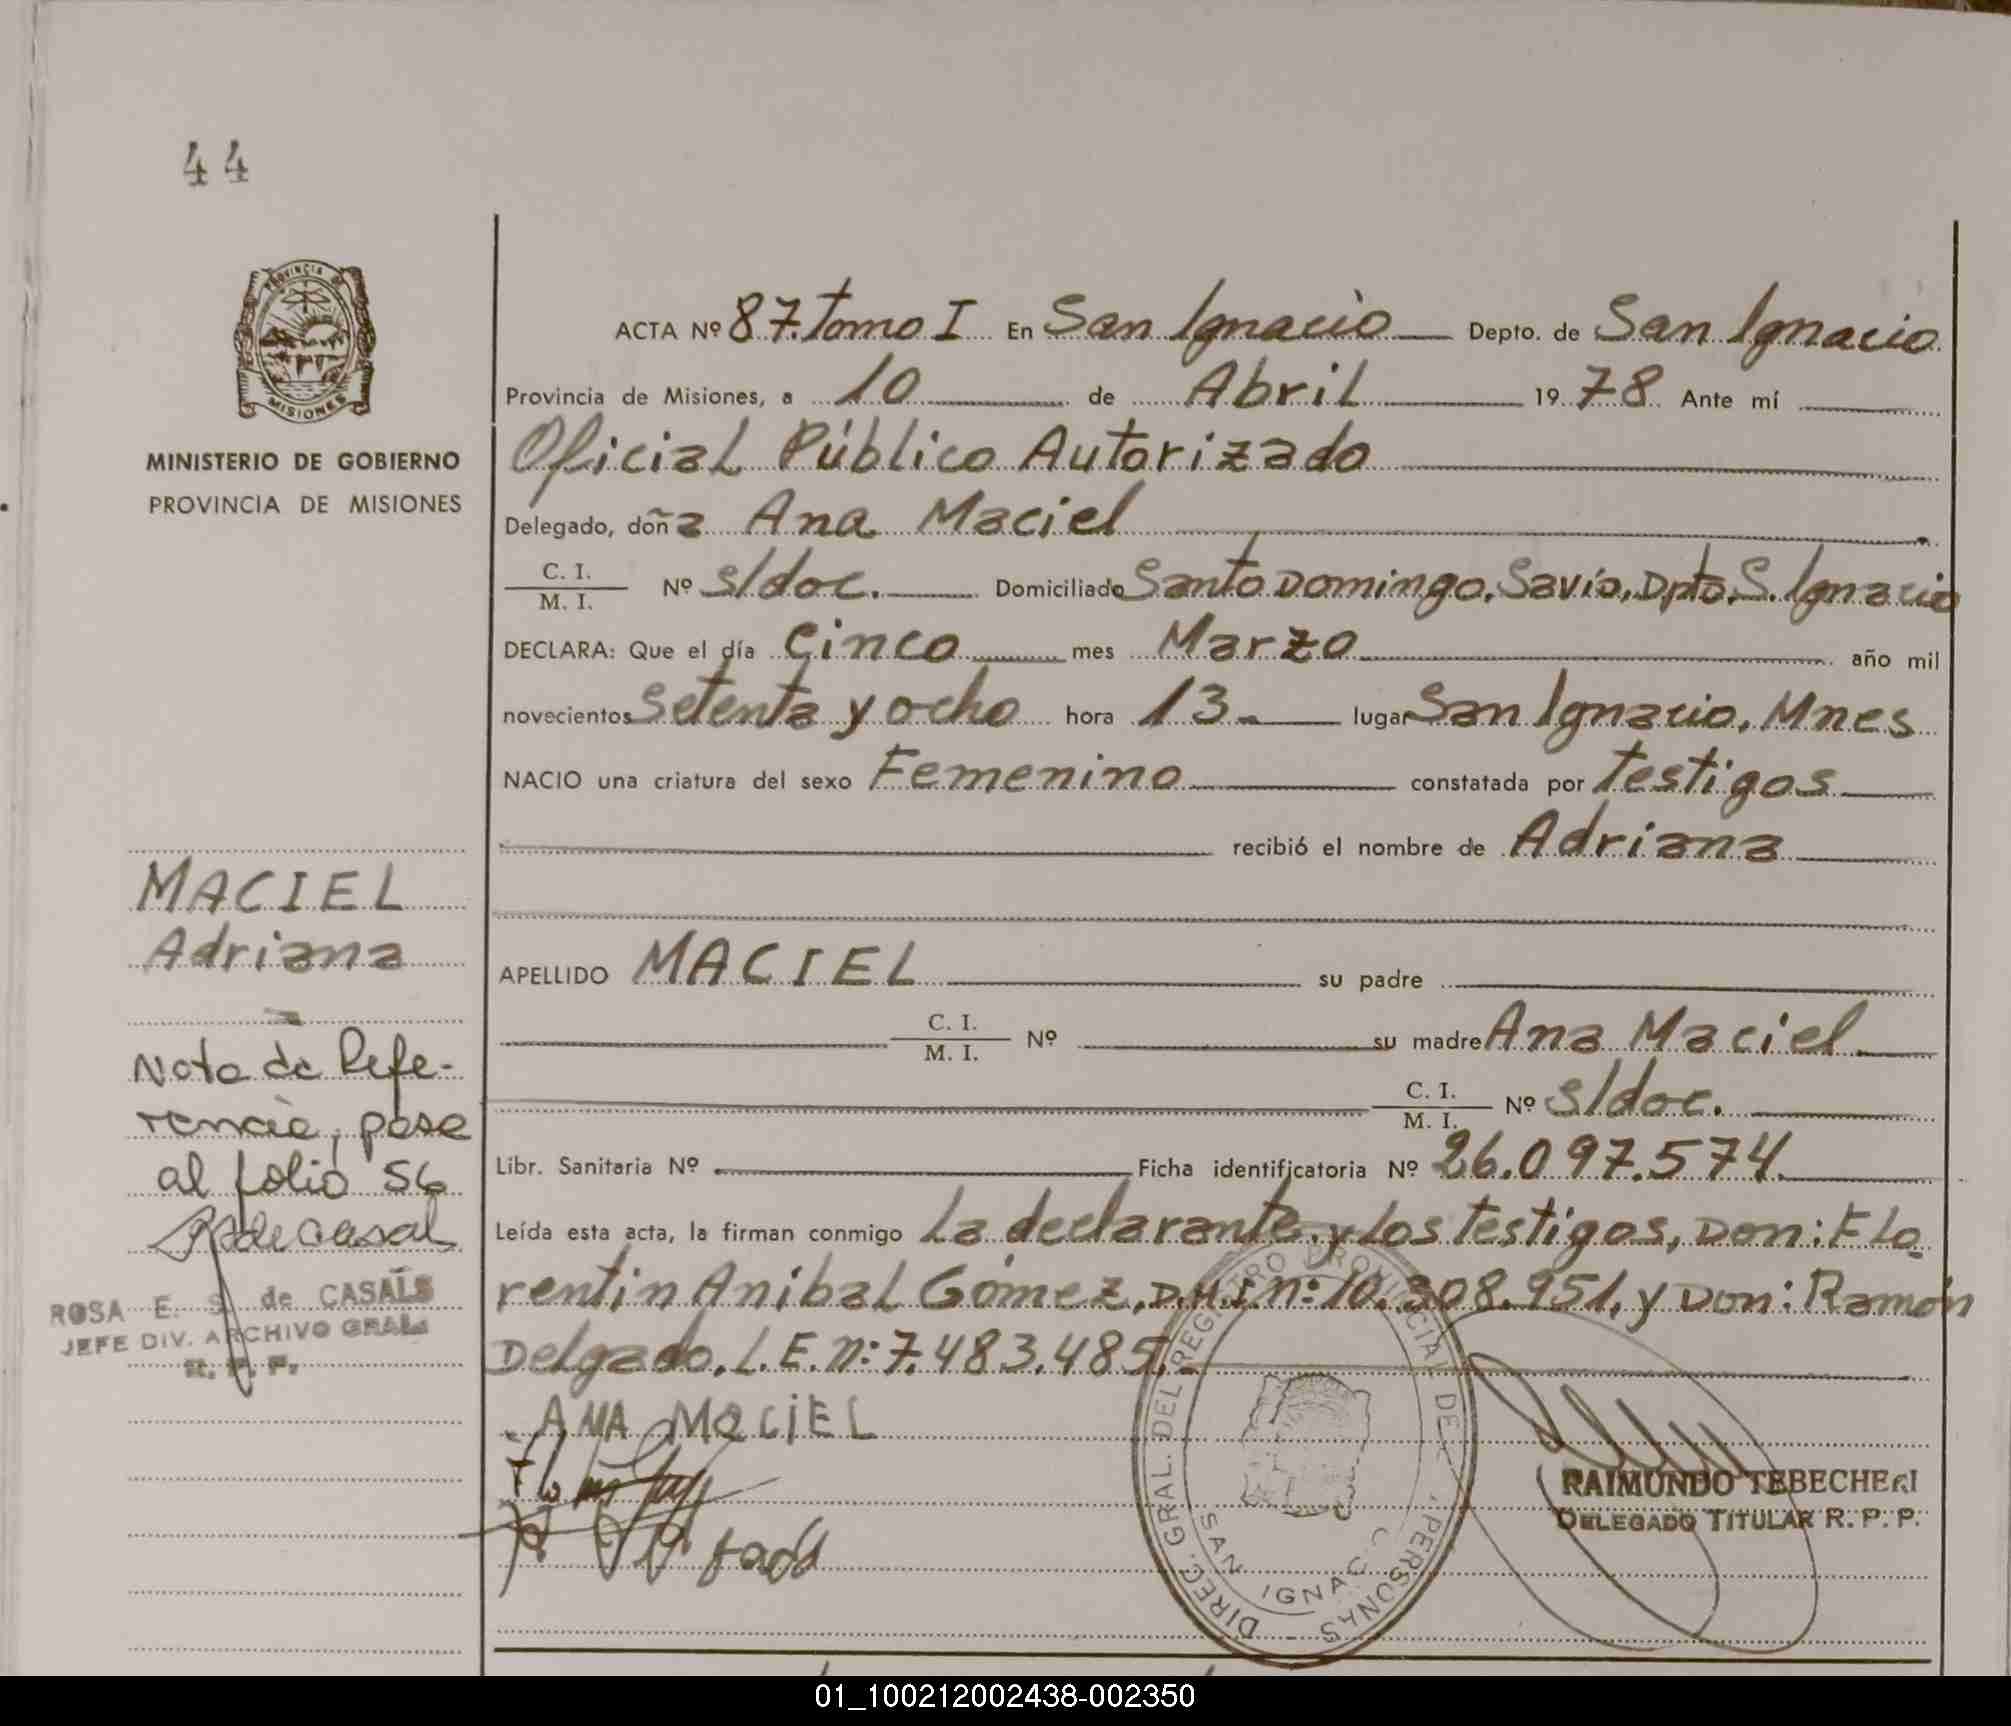 44
PROVINCIA DE
MISIONES
MINISTERIO DE GOBIERNO
PROVINCIA DE MISIONES
ACTA Nº 87. Tomo I En San Ignacio Depto. de San Ignacio
Provincia de Misiones, a 10 de Abril 1978 Ante mí
Oficial Público Autorizado
Delegado, doña Ana Maciel
C. I.
M. I. Nº s/doc. Domiciliado Santo Domingo, Savio, Dpto. S. Ignacio
DECLARA: Que el día Cinco mes Marzo año mil
novecientos Setenta y ocho hora 13 lugar San Ignacio, Mnes
NACIO una criatura del sexo Femenino constatada por Testigos
recibió el nombre de Adriana
APELLIDO MACIEL su padre
C. I.
M. I. Nº su madre Ana Maciel
C. I.
M. I. Nº s/doc.
Libr. Sanitaria Nº Ficha identificatoria Nº 26.097.574.
Leída esta acta, la firman conmigo La declarante, y Los testigos, Don: Flo
rentin Anibal Gómez, D.M.I. n: 10.308.951, y Don: Ramón
Delgado, L.E. n: 7.483.485.
ANA MaciEL
MACIEL
Adriana
Nota de Refe-
rencia, pase
al folio 56
R de Casal
ROSA E. S. de CASALS
JEFE DIV. ARCHIVO GRAL.
R. P. P.
DIREC. GRAL. DEL REGISTRO PROVINCIAL DE PERSONAS
SAN IGNACIO
RAIMUNDO TEBECHERI
DELEGADO TITULAR R. P. P.
01_100212002438-002350